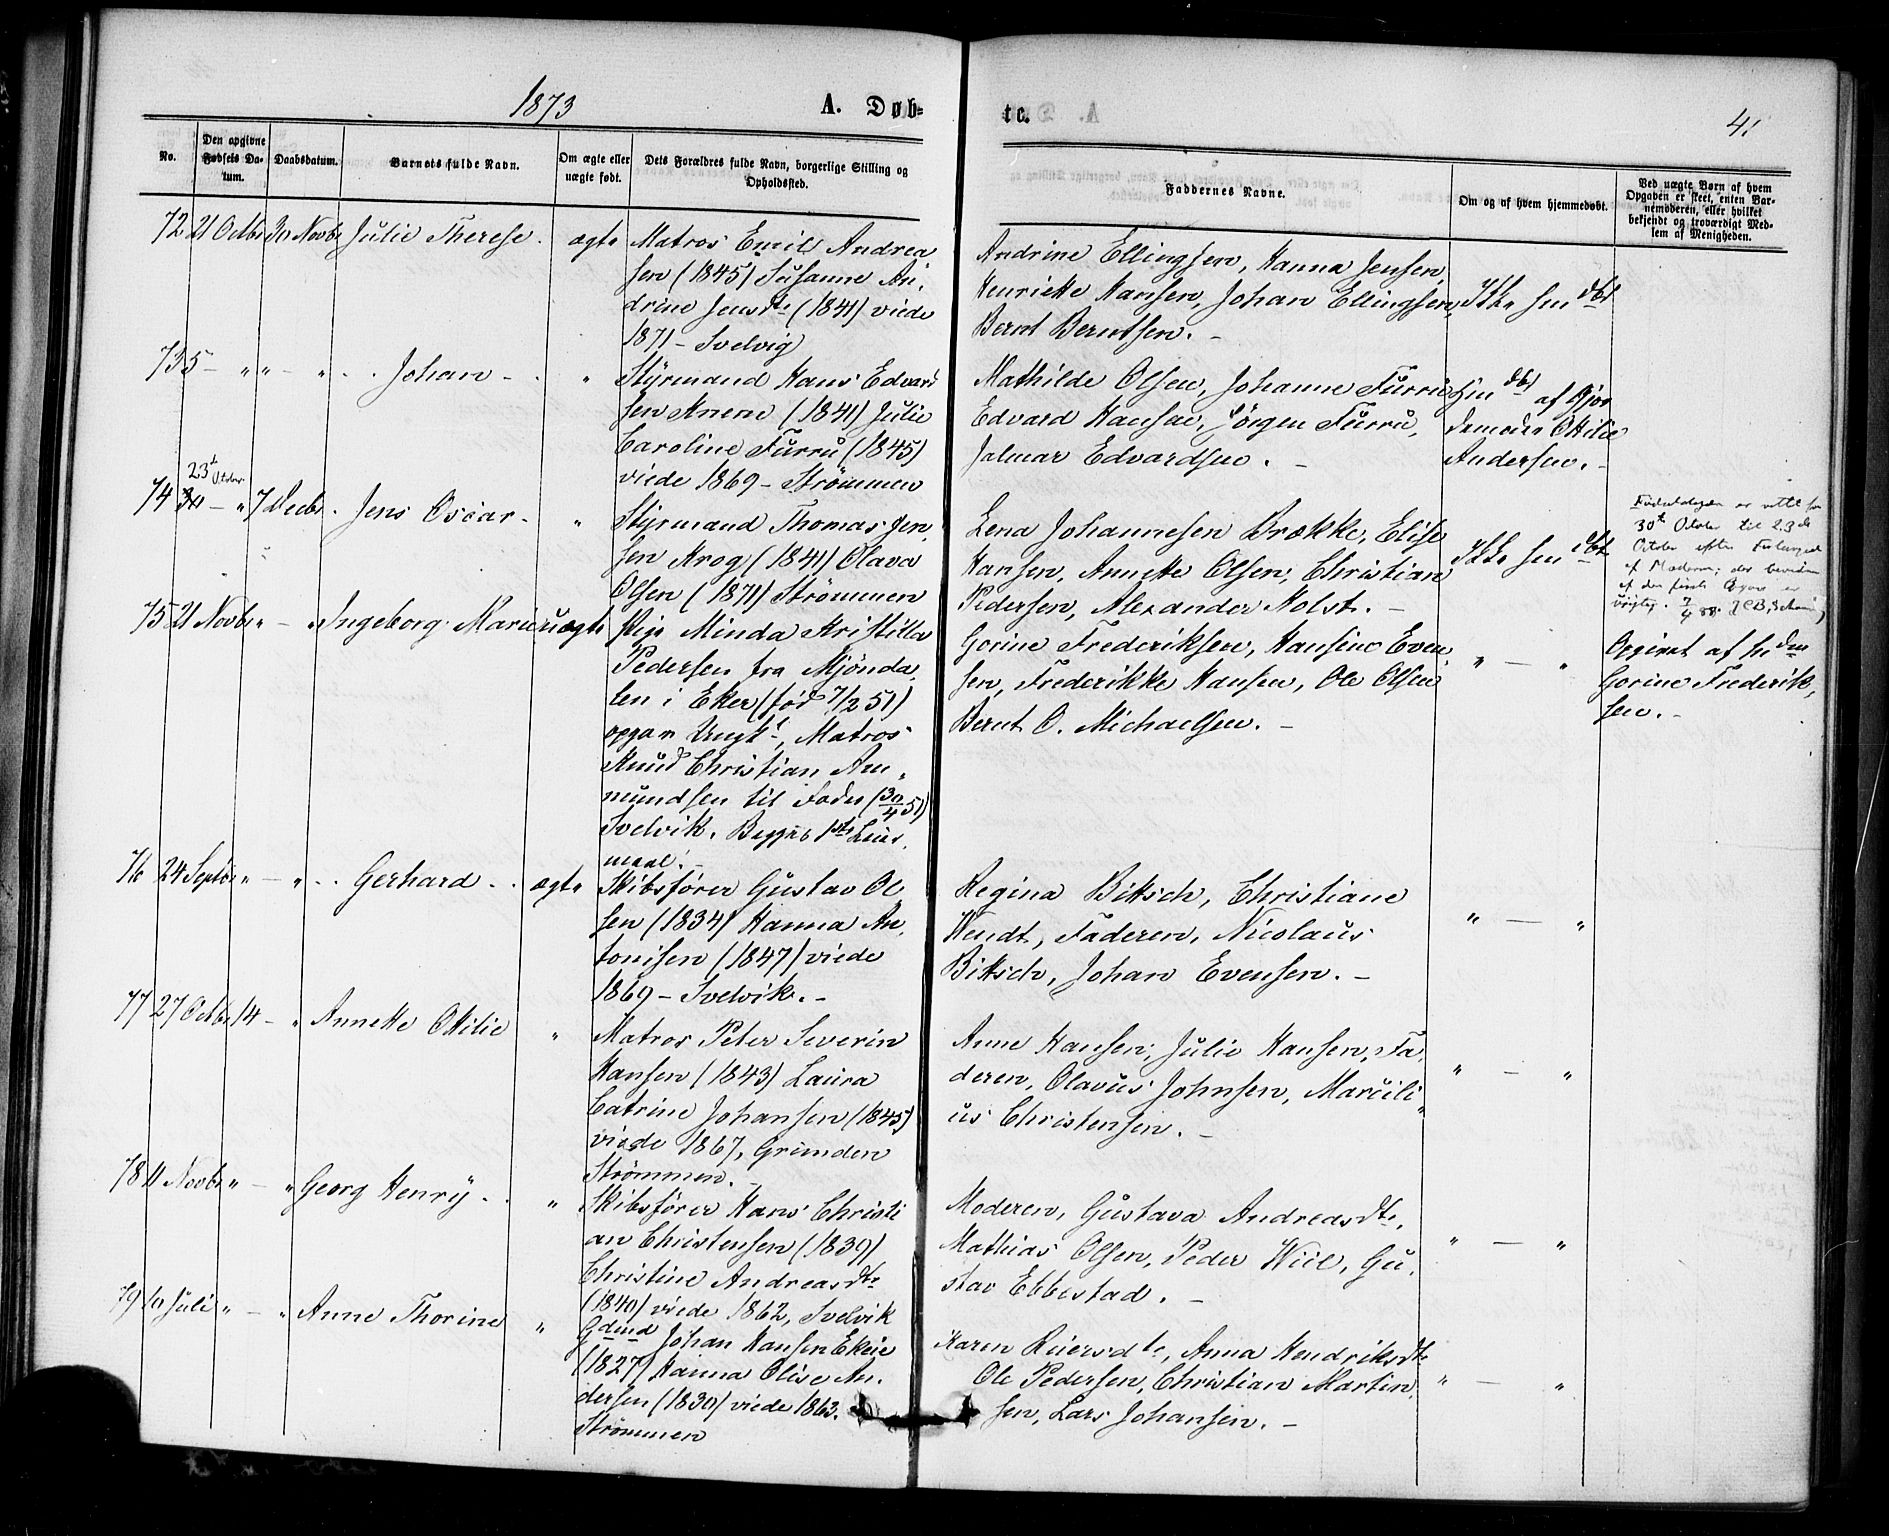 1873
A. Døb-
te.
41
No.
Den opgivne Fødsels Datum.
Daabsdatum.
Barnets fulde Navn.
Om ægte eller uægte født.
Dets Forældres fulde Navn, borgerlige Stilling og Opholdssted.
Faddernes Navne.
Om og af hvem hjemmedøbt.
Ved uægte Børn af hvem Opgaven er skeet, enten Barnemoderen, eller hvilket bekjendt og troværdigt Medlem af Menigheden.
72 21 Octbr 30 Novbr Julie Therese. ægte
Matros Emil Andrea
sen (1845) Susanne An,
drine Jensdtr (1841) viede
1871 - Svelvig
Andrine Ellingsen, Hanna Jensen,
Henriette Hansen, Johan Ellingsen,
Bernt Berntsen. -
Ikke hmdbt
73 5 - " " - " . . Johan - . "
Styrmand Hans Edvard
sen Knem (1841) Julie
Caroline Furru (1845)
viede 1869 - Strømmen
Mathilde Olsen, Johanne Furru,
Edvard Hansen, Jørgen Furru,
Jalmar Edvardsen. -
Hmdbt af Gjor
demoder Ottilie
Andersen. -
23de October
74 30 - " 7 Decbr. Jens Oscar. "
Styrmand Thomas Jen,
sen Krog (1841) Olava
Olsen (1871) Strømmen
Lena Johannesen Brække, Elise
Hansen, Annette Olsen, Christian
Pedersen, Alexander Holst. -
Ikke hmdbt
Fødselsdagen er rettet fra
30te October til 23de
October efter Forlangende
af Moderen; der bevidner
at den første Opgave er
urigtig. 7/4 88.
75 21 Novbr " - " Ingeborg Marie uægte
Pige Minda Kristilla
Pedersen fra Mjønda,
len i Eker (fød 7/2 51)
opgav Ungk., Matros
Knud Christian Am,
mundsen til Fader (30/4 51)
Svelvik. Begges 1ste Leiers
maal. -
Gorine Frederiksen, Hansine Even,
sen, Frederikke Hansen, Ole Olsen
Bernt O. Michaelsen. -
" - "
Opgivet af
Gorine Frederik,
sen. -
76 24 Septbr " - " . . Gerhard . . ægte
Skibsfører Gustav Ol
sen (1834) Hanna An,
tonisen (1847) viede
1869 - Svelvik. -
Regina Bittsch, Christiane
Wendt, Faderen, Nicolaus
Bittsch, Johan Evensen. -
" - "
77 27 Octbr 14 - " Annette Ottilie "
Matros Peter Severin
Hansen (1843) Laura
Catrine Johansen (1845)
viede 1867, Grunden
Strømmen. -
Anne Hansen, Julie Hansen, Fa,
deren, Olavus Johnsen, Marcili,
us Christensen. -
" - "
78 11 Novbr " - " Georg Henry - . "
Skibsfører Hans Christi
an Christensen (1839)
Christine Andreasdtr
(1840) viede 1862, Svelvik
Moderen, Gustava Andreasdtr,
Mathias Olsen, Peder Wiil, Gu,
stav Ebbestad. -
" - "
79 10 Juli " - " Anne Thorine "
Gdmd Johan Hansen Ekeie
(1827) Hanna Olise An,
dersen (1830) viede 1863.
Strømmen
Karen Reiersdtr, Anna Hendriksdtr
Ole Pedersen, Christian Martin,
sen, Lars Johansen. -
" - "